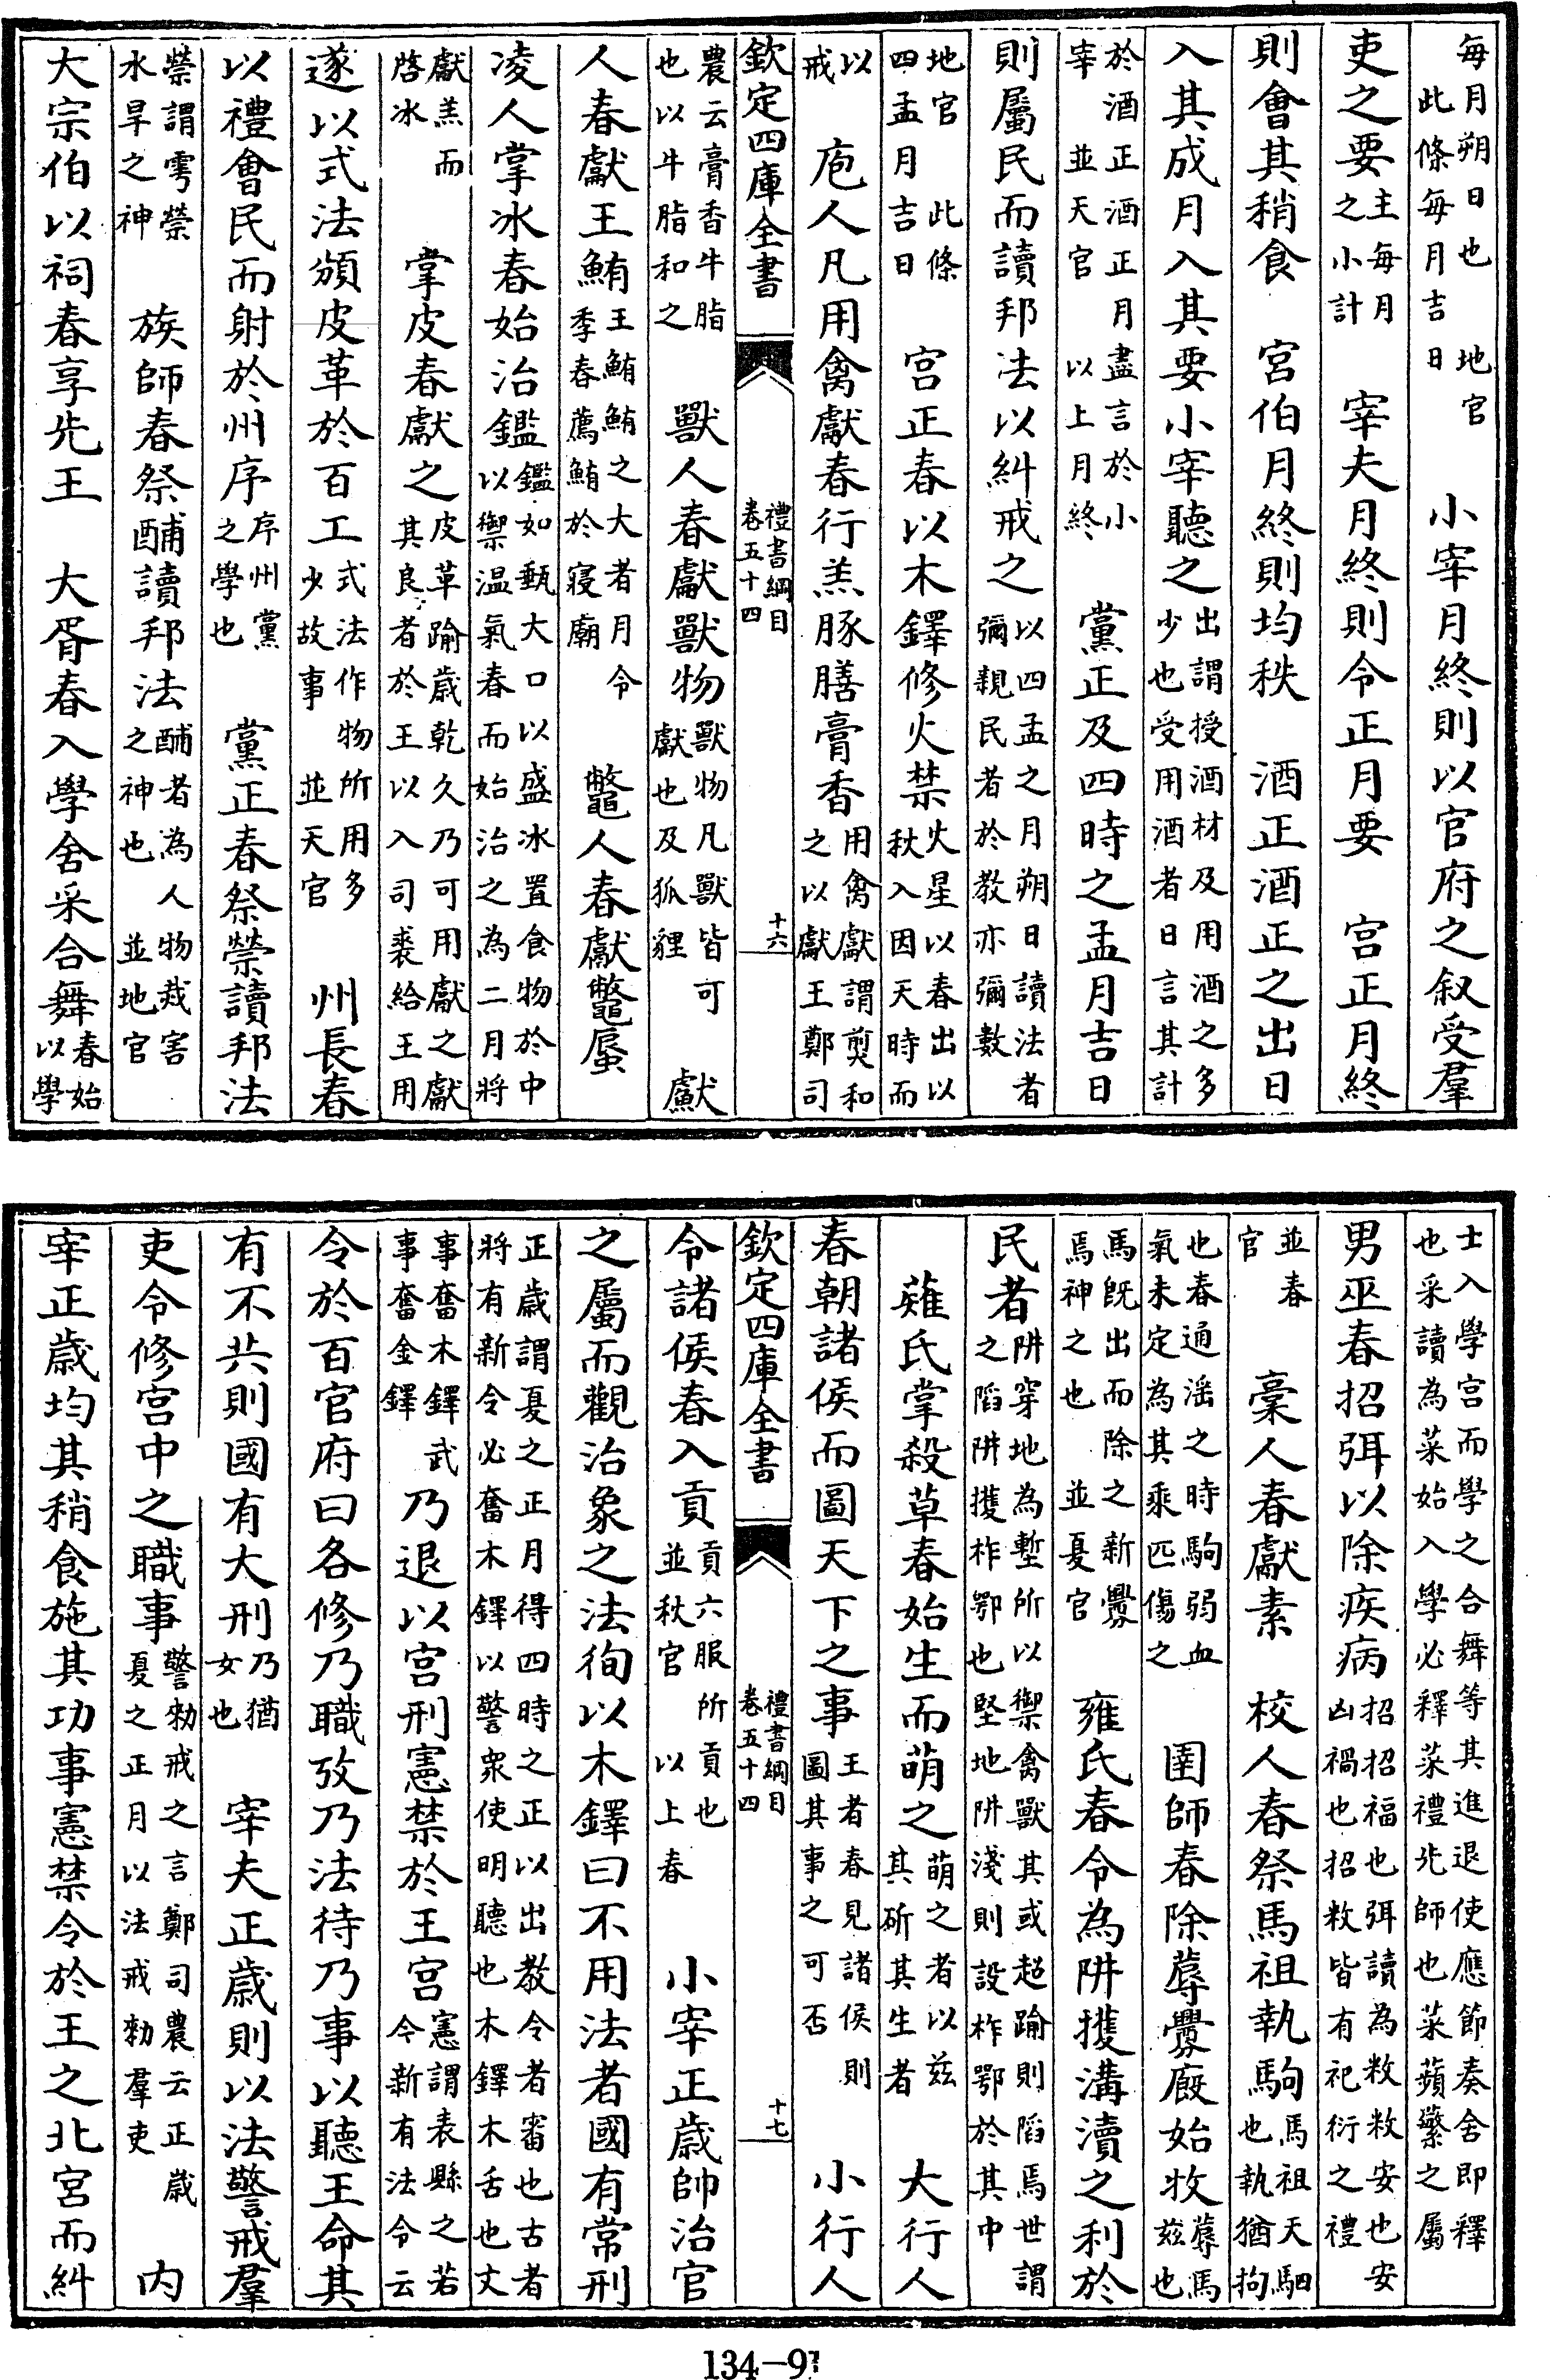 每月朔日也地官
此條每月吉日
小宰月終則以官府之叙受羣
吏之要主每月之小計宰夫月終則令正月要宫正月終
則會其稍食宫伯月終則均秩酒正酒正之出日
入其成月入其要小宰聽之出謂授酒材及用酒之多少也受用酒者日言其計
於酒正酒正月盡言於小宰並天官以上月終黨正及四時之孟月吉日
則屬民而讀邦法以糾戒之以四孟之月朔日讀法者彌親民者於教亦彌數
地官此條四孟月吉日宫正春以木鐸修火禁火星以春出以秋入因天時而
以戒庖人凡用禽獻春行羔豚膳膏香用禽獻謂煎和之以獻王鄭司
欽定四庫全書
禮書綱目
卷五十四
十六
農云膏香牛脂也以牛脂和之獸人春獻獸物獸物凡獸皆可獻也及狐貍䱷
人春獻王鮪王鮪鮪之大者月令季春薦鮪於寢廟鼈人春獻鼈蜃
凌人掌冰春始治鑑鑑如甄大口以盛冰置食物於中以禦温氣春而始治之為二月將
獻羔而啓冰掌皮春獻之皮革踰歲乾久乃可用獻之獻其良者於王以入司裘給王用
遂以式法頒皮革於百工式法作物所用多少故事並天官州長春
以禮會民而射於州序序州黨之學也黨正春祭禜讀邦法
禜謂雩禜水旱之神族師春祭酺讀邦法酺者為人物烖害之神也並地官
大宗伯以祠春享先王大胥春入學舍采合舞春始以學
士入學宫而學之合舞等其進退使應節奏舍即釋也采讀為菜始入學必釋菜禮先師也菜蘋蘩之屬
男巫春招弭以除疾病招招福也弭讀為敉敉安也安凶禍也招敉皆有祀衍之禮
並春官稾人春獻素校人春祭馬祖執駒馬祖天駟也執猶拘
也春通淫之時駒弱血氣未定為其乘匹傷之圉師春除蓐釁廐始牧蓐馬兹也
馬既出而除之新釁焉神之也並夏官雍氏春令為阱擭溝瀆之利於
民者阱穿地為塹所以禦禽獸其或超踰則陷焉世謂之陷阱擭柞鄂也堅地阱淺則設柞鄂於其中
薙氏掌殺草春始生而萌之萌之者以兹其斫其生者大行人
春朝諸侯而圖天下之事王者春見諸侯則圖其事之可否小行人
欽定四庫全書
禮書綱目
卷五十四
十七
令諸侯春入貢貢六服所貢也並秋官以上春小宰正歲帥治官
之屬而觀治象之法徇以木鐸曰不用法者國有常刑
正歲謂夏之正月得四時之正以出教令者審也古者將有新令必奮木鐸以警衆使明聽也木鐸木舌也文
事奮木鐸武事奮金鐸乃退以宫刑憲禁於王宫憲謂表縣之若今新有法令云
令於百官府曰各修乃職攷乃法待乃事以聽王命其
有不共則國有大刑乃猶女也宰夫正歲則以法警戒羣
吏令修宫中之職事警勑戒之言鄭司農云正歲夏之正月以法戒勑羣吏内
宰正歲均其稍食施其功事憲禁令於王之北宫而糾